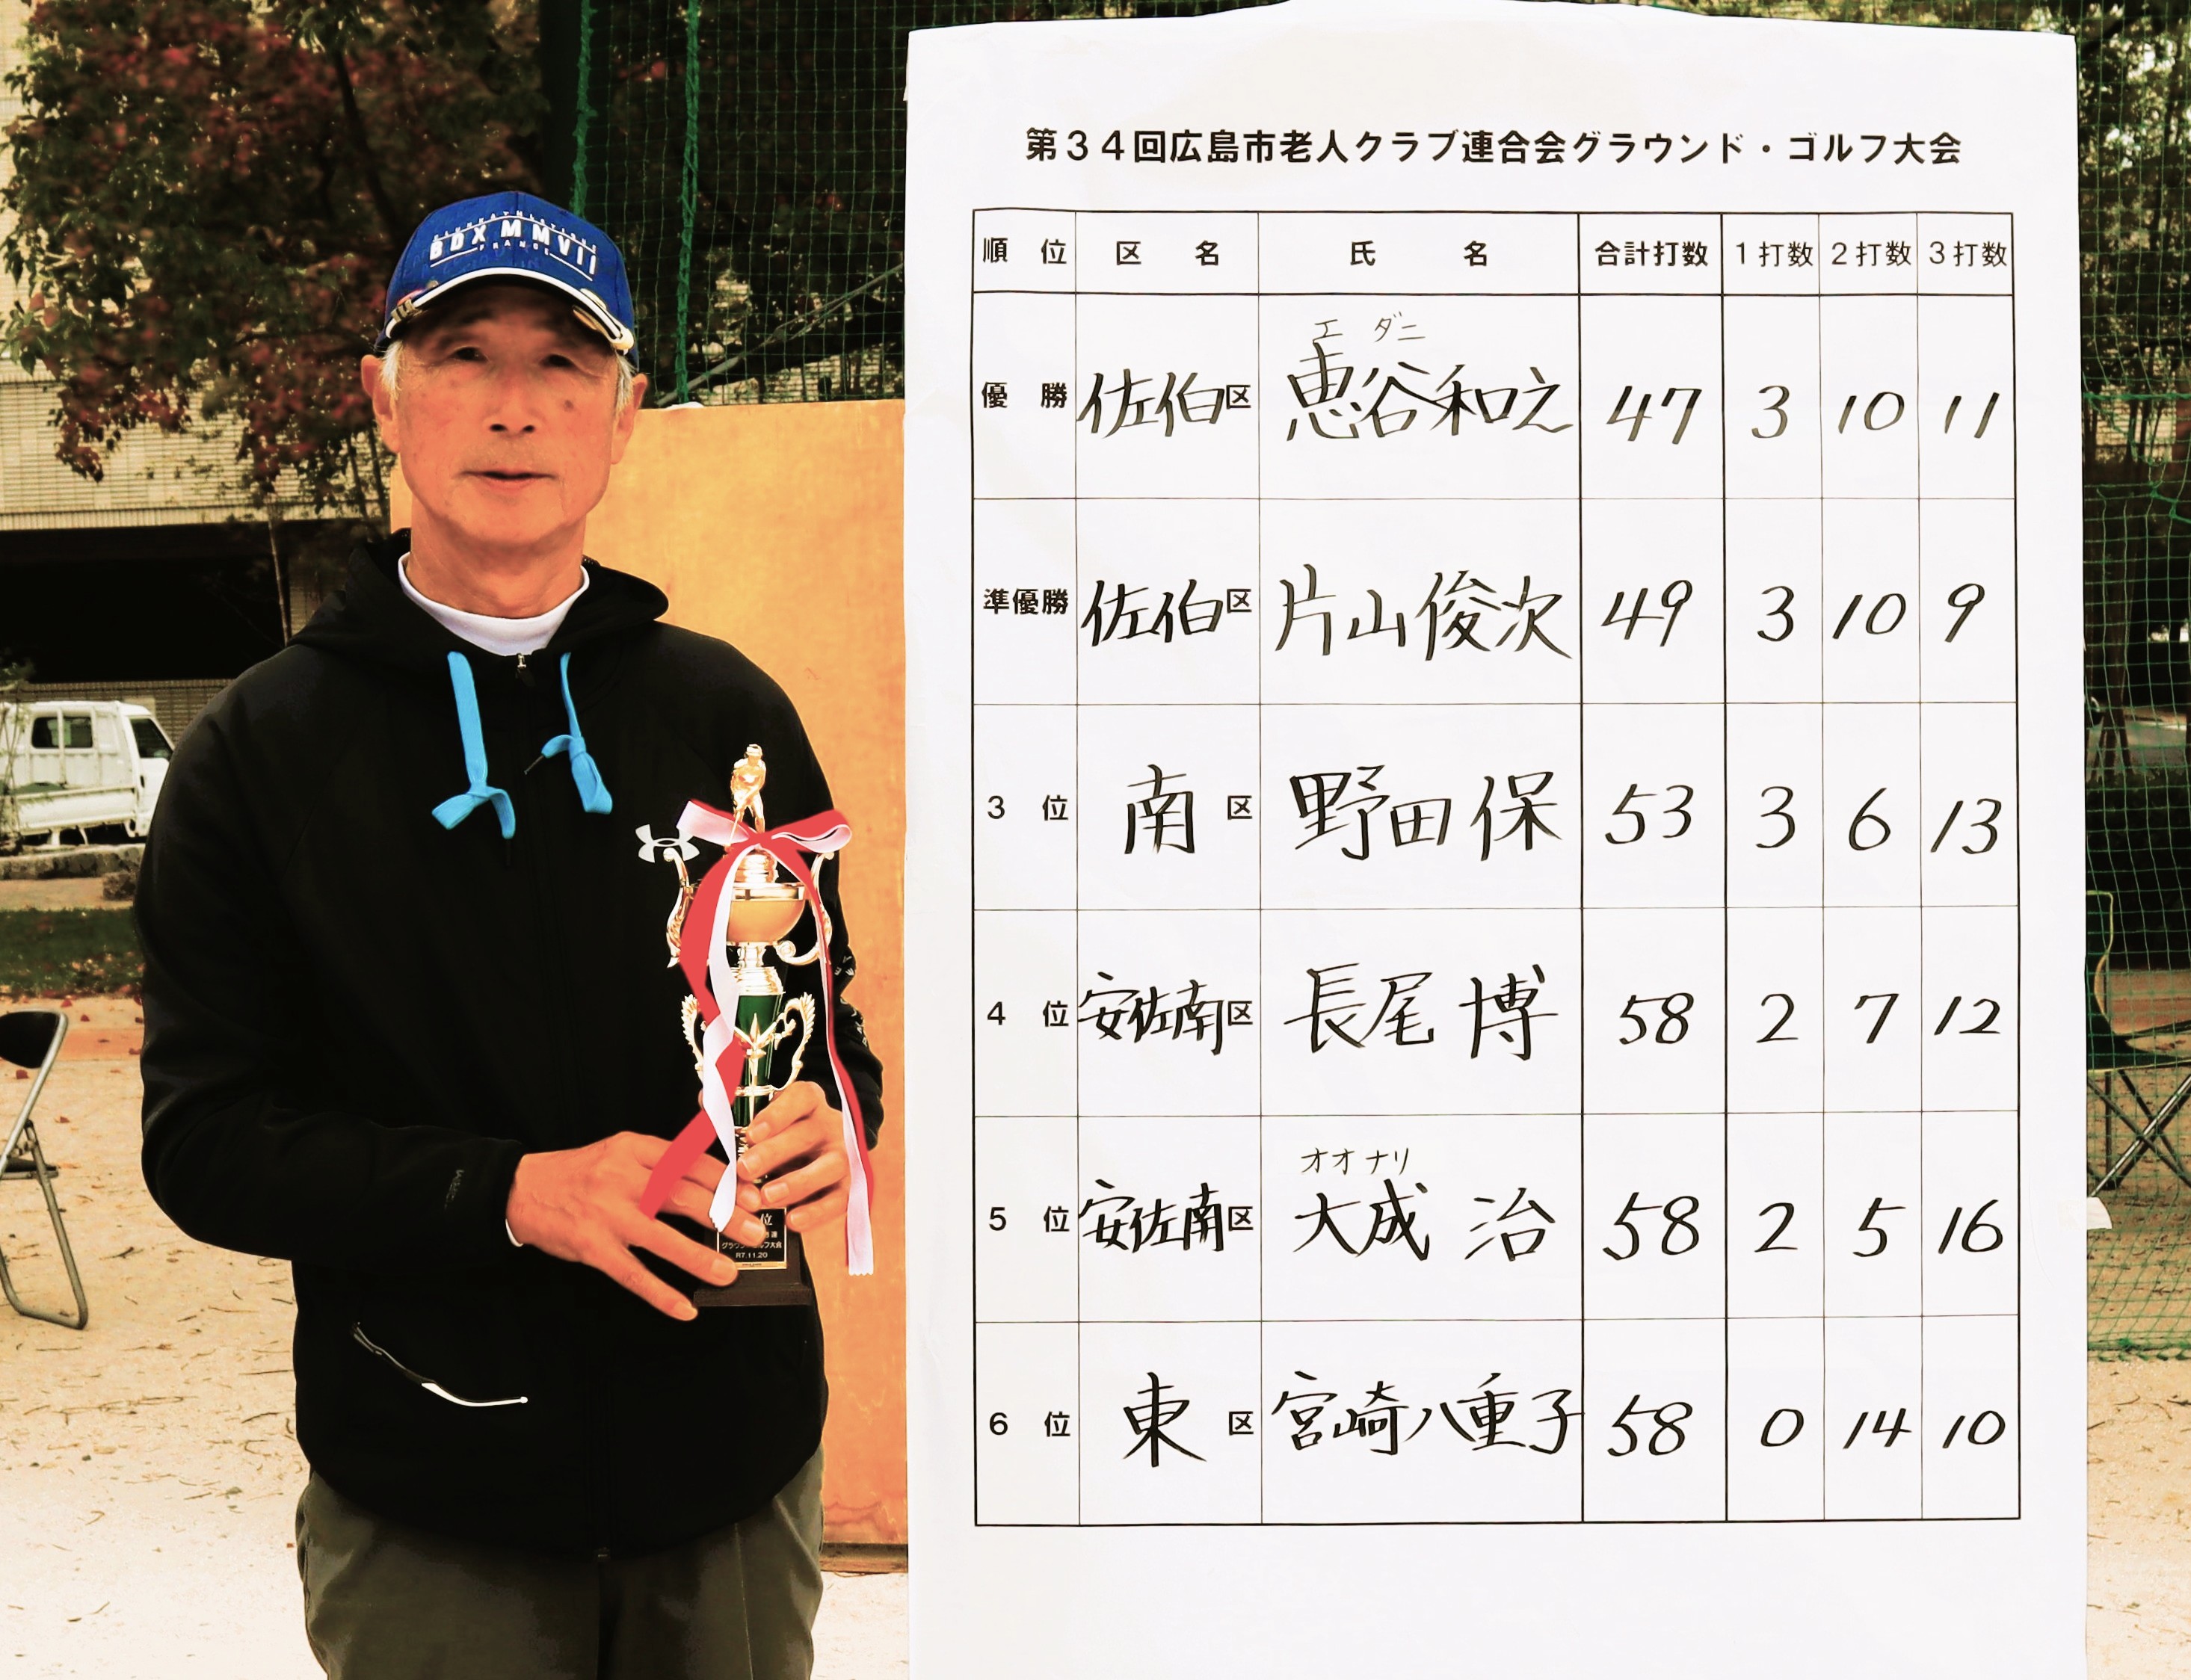 第34回広島市老人クラブ連合会グラウンド・ゴルフ大会
順位 区名 氏名 合計打数 1打数 2打数 3打数
エダニ
優勝 佐伯区 恵谷和之 47 3 10 11
準優勝 佐伯区 片山俊次 49 3 10 9
3位 南区 野田保 53 3 6 13
4位 安佐南区 長尾博 58 2 7 12
オオナリ
5位 安佐南区 大成治 58 2 5 16
6位 東区 宮崎八重子 58 0 14 10
BDX MMVII
FRANCE
位
R7.11.20